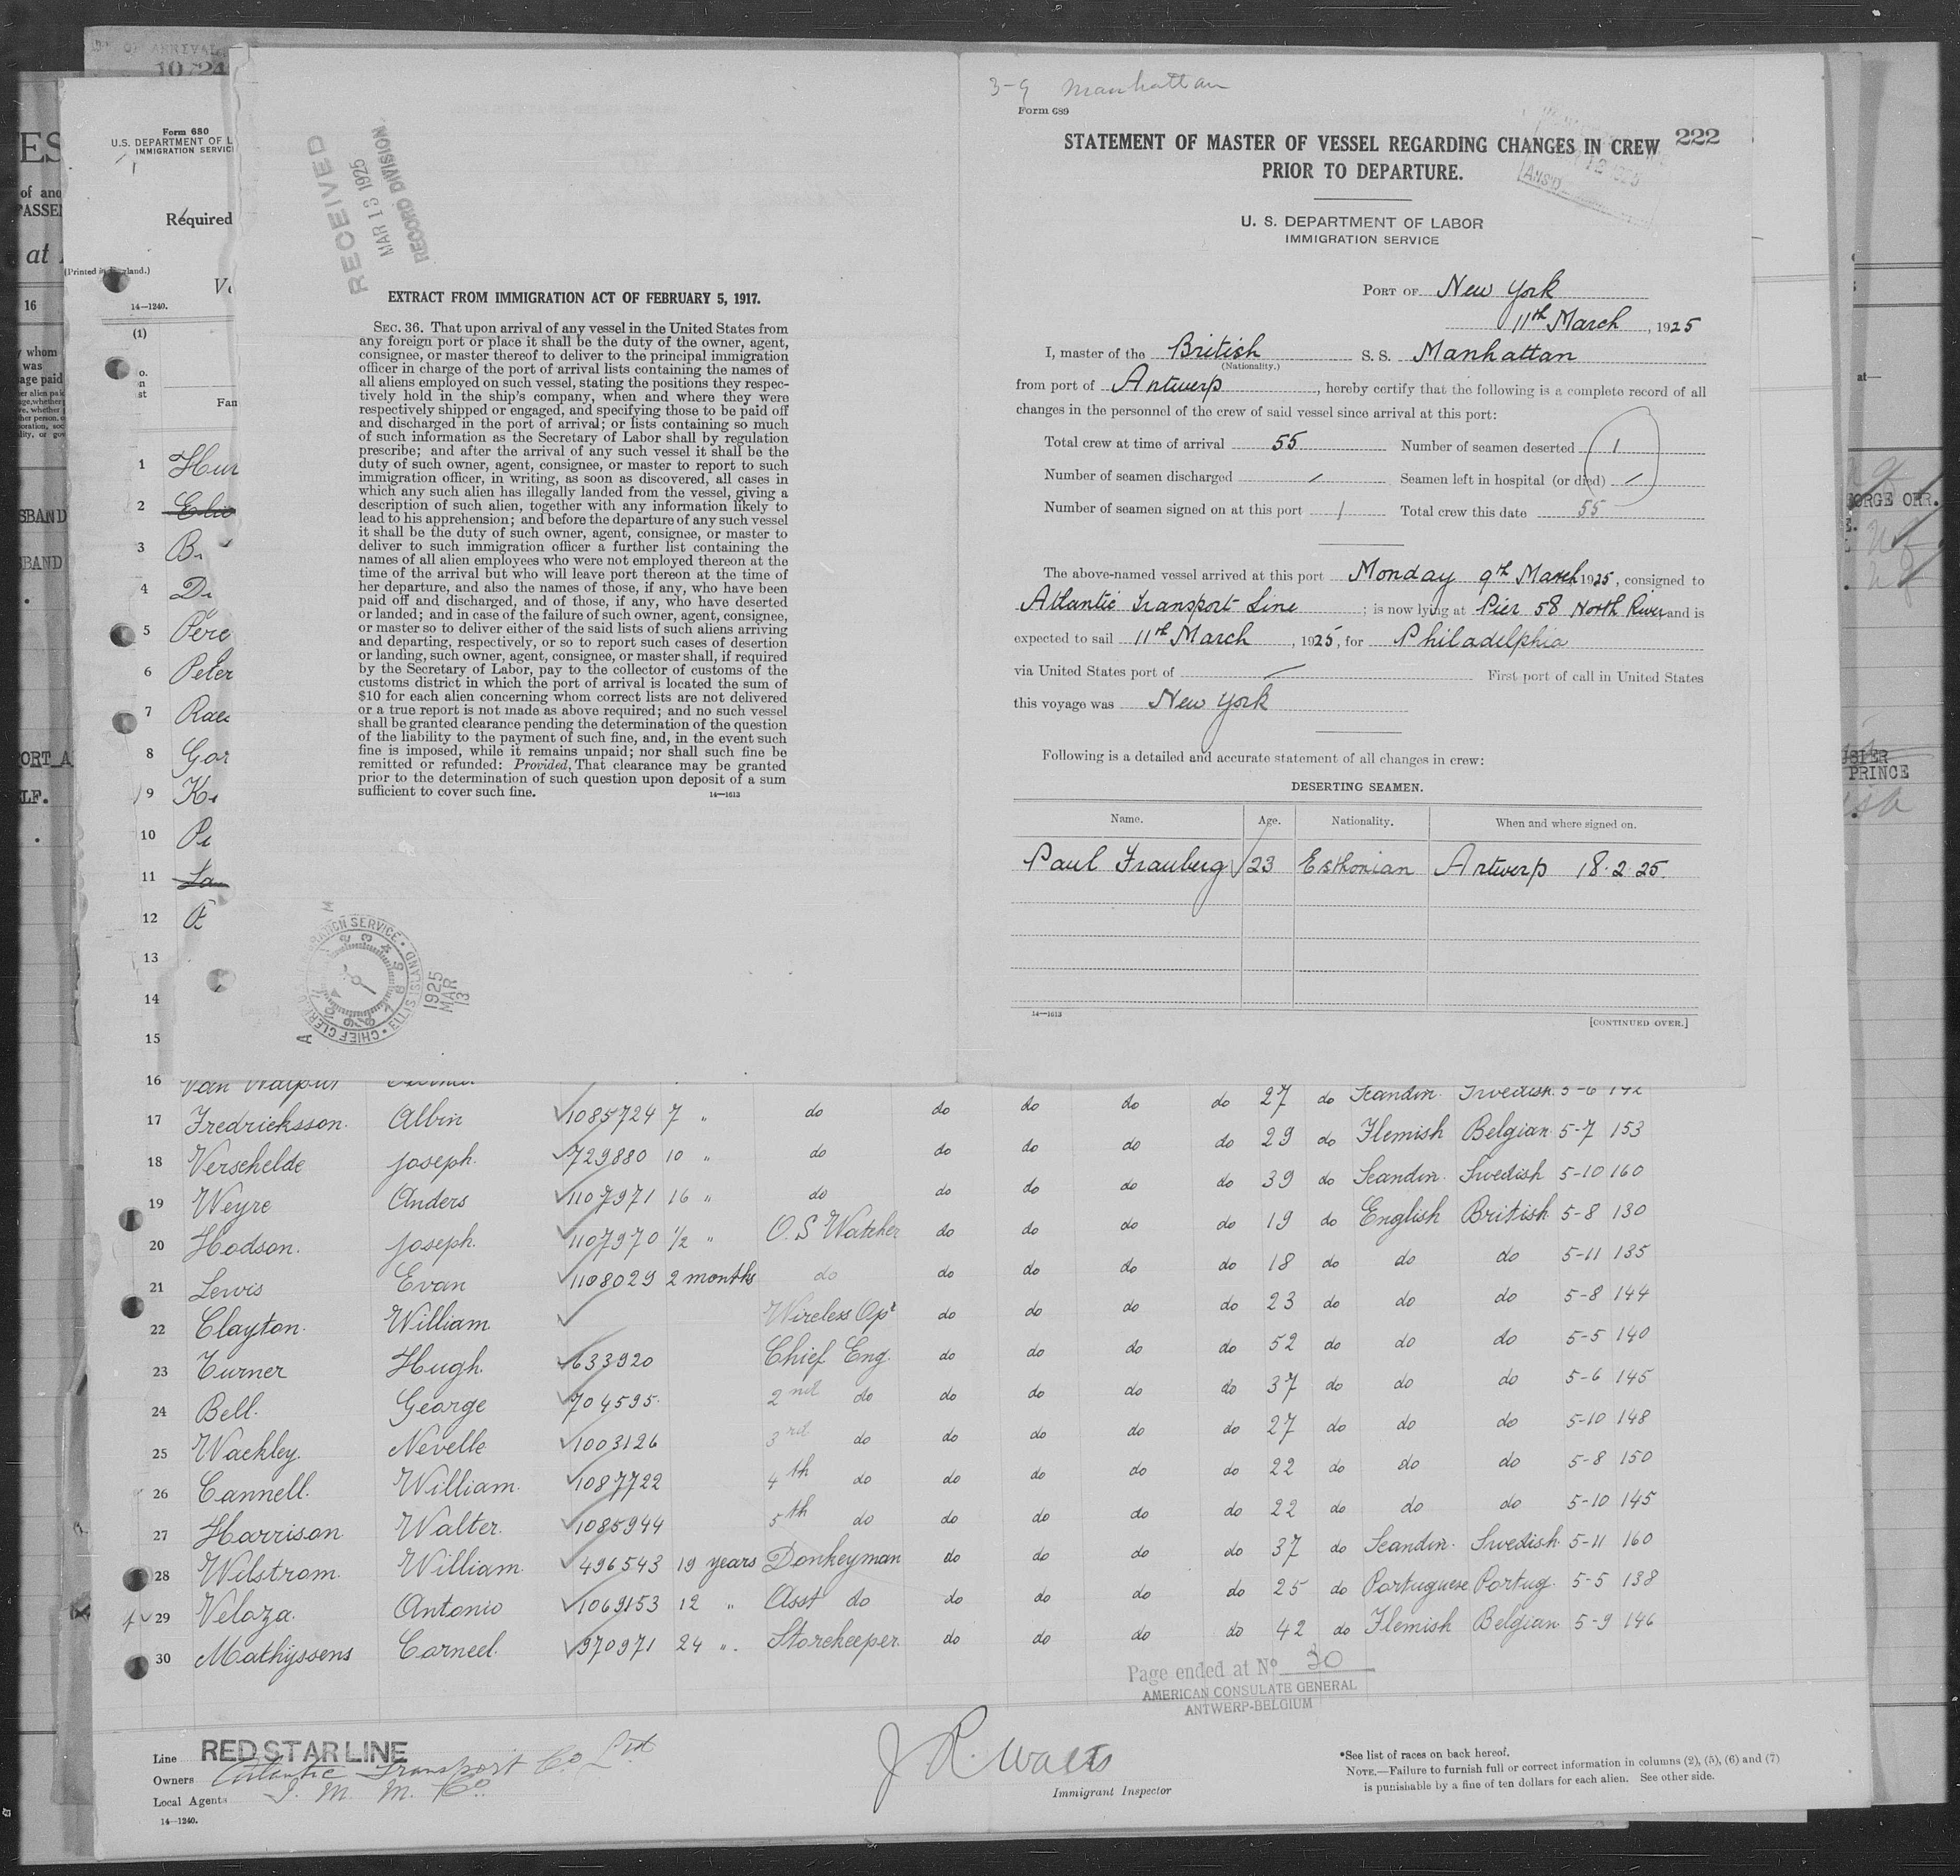 3-9 Manhattan
Form 689
STATEMENT OF MASTER OF VESSEL REGARDING CHANGES IN CREW
PRIOR TO DEPARTURE.
222
U. S. DEPARTMENT OF LABOR
IMMIGRATION SERVICE
PORT OF New York
11th March, 1925
I, master of the British S. S. Manhattan
(Nationality.)
from port of Antwerp, hereby certify that the following is a complete record of all
changes in the personnel of the crew of said vessel since arrival at this port:
Total crew at time of arrival 55 Number of seamen deserted 1
Number of seamen discharged / Seamen left in hospital (or died) /
Number of seamen signed on at this port 1 Total crew this date 55
The above-named vessel arrived at this port Monday 9th March 1925, consigned to
Atlantic Transport Line; is now lying at Pier 58 North River and is
expected to sail 11th March, 1925, for Philadelphia
via United States port of — First port of call in United States
this voyage was New York
Following is a detailed and accurate statement of all changes in crew:
DESERTING SEAMEN.
Name. Age. Nationality. When and where signed on.
Paul Frauberg 23 Esthonian Antwerp 18.2.25.
14—1613
[CONTINUED OVER.]
RECEIVED
MAR 13 1925
RECORD DIVISION
EXTRACT FROM IMMIGRATION ACT OF FEBRUARY 5, 1917.
SEC. 36. That upon arrival of any vessel in the United States from
any foreign port or place it shall be the duty of the owner, agent,
consignee, or master thereof to deliver to the principal immigration
officer in charge of the port of arrival lists containing the names of
all aliens employed on such vessel, stating the positions they respec-
tively hold in the ship's company, when and where they were
respectively shipped or engaged, and specifying those to be paid off
and discharged in the port of arrival; or lists containing so much
of such information as the Secretary of Labor shall by regulation
prescribe; and after the arrival of any such vessel it shall be the
duty of such owner, agent, consignee, or master to report to such
immigration officer, in writing, as soon as discovered, all cases in
which any such alien has illegally landed from the vessel, giving a
description of such alien, together with any information likely to
lead to his apprehension; and before the departure of any such vessel
it shall be the duty of such owner, agent, consignee, or master to
deliver to such immigration officer a further list containing the
names of all alien employees who were not employed thereon at the
time of the arrival but who will leave port thereon at the time of
her departure, and also the names of those, if any, who have been
paid off and discharged, and of those, if any, who have deserted
or landed; and in case of the failure of such owner, agent, consignee,
or master so to deliver either of the said lists of such aliens arriving
and departing, respectively, or so to report such cases of desertion
or landing, such owner, agent, consignee, or master shall, if required
by the Secretary of Labor, pay to the collector of customs of the
customs district in which the port of arrival is located the sum of
$10 for each alien concerning whom correct lists are not delivered
or a true report is not made as above required; and no such vessel
shall be granted clearance pending the determination of the question
of the liability to the payment of such fine, and, in the event such
fine is imposed, while it remains unpaid; nor shall such fine be
remitted or refunded: Provided, That clearance may be granted
prior to the determination of such question upon deposit of a sum
sufficient to cover such fine.
14—1613
CHIEF CLERK ELLIS ISLAND
1925 MAR 13
Form 680
U.S. DEPARTMENT OF L
IMMIGRATION SERVIC
Required
14—1240.
(1)
1 Hur
2
3
4
5 Pere
6 Peter
7
8 Gor
9
10
11
12
13
14
15
16
17 Fredricksson. Albin 1085724 7 " do do do do do 27 do Scandin. Swedish. 5-6 142
18 Verschelde Joseph. 729880 10 " do do do do do 29 do Flemish Belgian 5-7 153
19 Weyre Anders 1107971 16 " do do do do do 39 do Scandin. Swedish 5-10 160
20 Hodson. Joseph. 1107970 1/2 " O.S Watcher do do do do 19 do English British 5-8 130
21 Lewis Evan 1108029 2 months do do do do do 18 do do do 5-11 135
22 Clayton. William Wireless Opr do do do do 23 do do do 5-8 144
23 Turner Hugh. 633920 Chief Eng. do do do do 52 do do do 5-5 140
24 Bell. George 704595. 2nd do do do do do 37 do do do 5-6 145
25 Wackley. Nevelle 1003126 3rd do do do do do 27 do do do 5-10 148
26 Cannell. William. 1087722 4th do do do do do 22 do do do 5-8 150
27 Harrison Walter. 1085944 5th do do do do do 22 do do do 5-10 145
28 Wilstrom. William 496543 19 years Donkeyman do do do do 37 do Scandin. Swedish 5-11 160
29 Veloza. Antonio 1069153 12 " Asst do do do do do 25 do Portuguese Portug. 5-5 138
30 Mathyssens Corneel. 970971 24 " Storekeeper. do do do do 42 do Flemish Belgian 5-9 146
Page ended at No 30
AMERICAN CONSULATE GENERAL
ANTWERP-BELGIUM
Line RED STAR LINE
Owners Atlantic Transport Co Ltd
Local Agents I. M. M. Co.
14—1240.
J R. Watts
Immigrant Inspector
*See list of races on back hereof.
NOTE.—Failure to furnish full or correct information in columns (2), (5), (6) and (7)
is punishable by a fine of ten dollars for each alien. See other side.